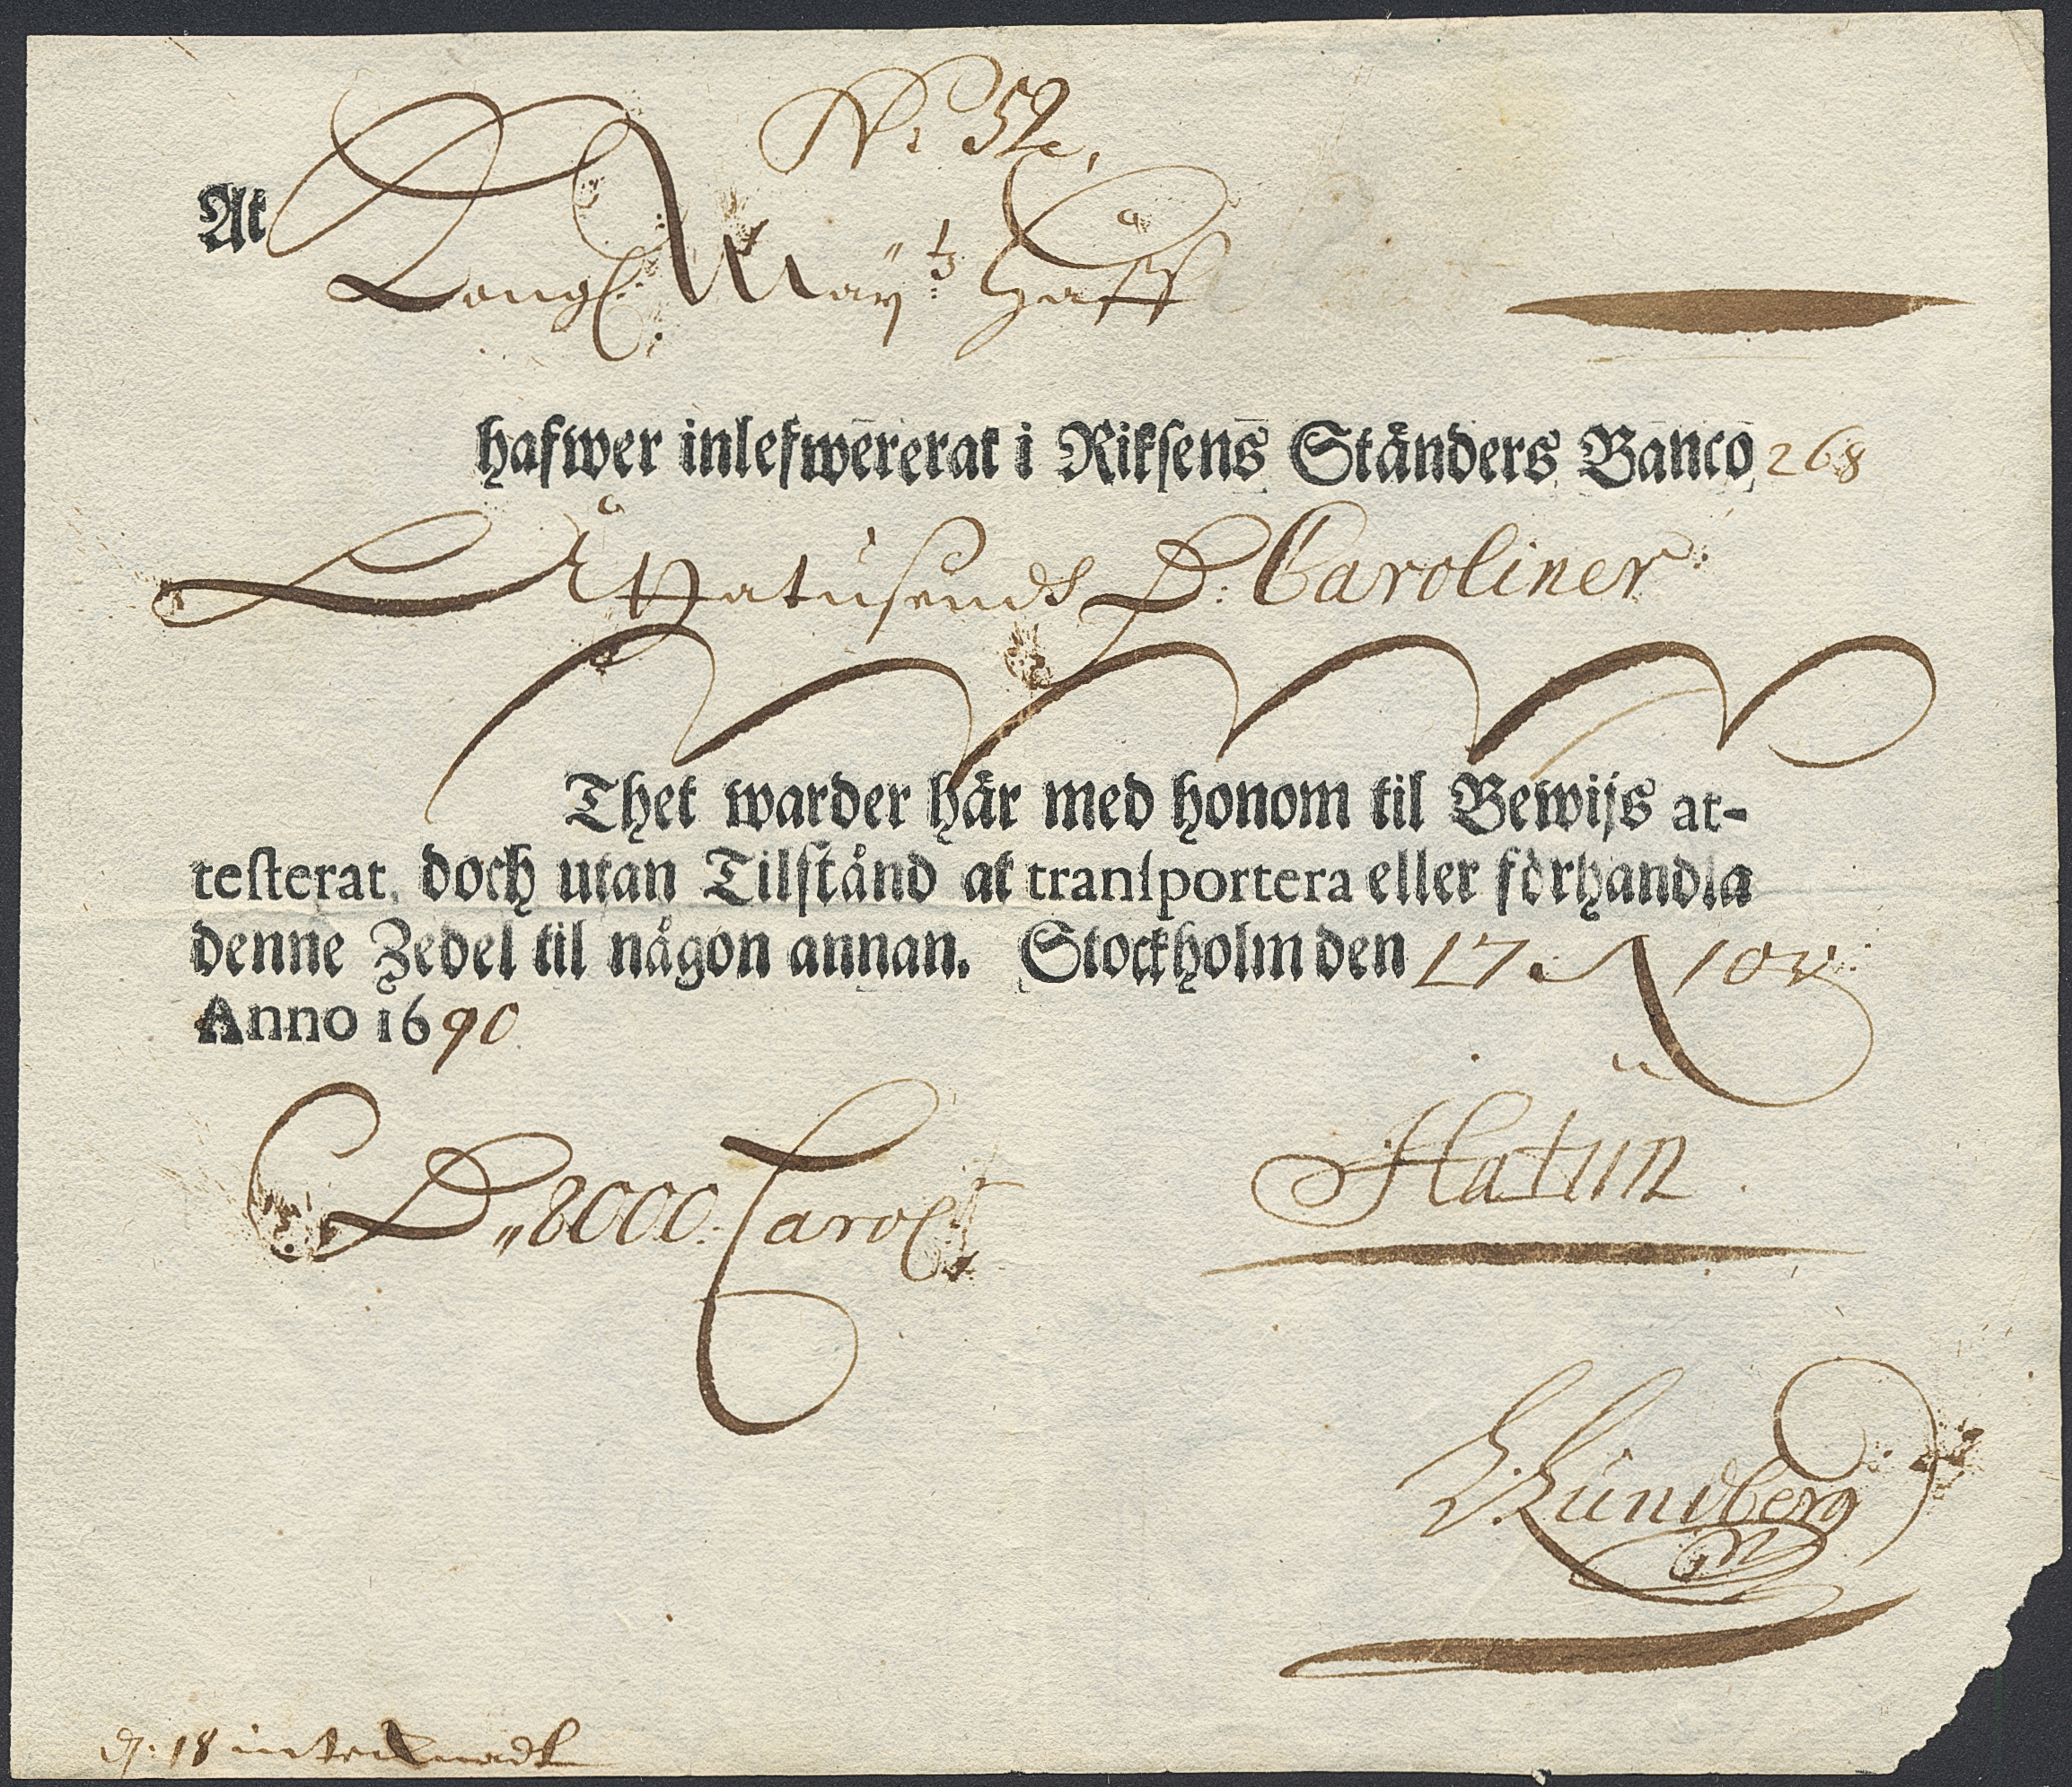 No 52,
At
Kongl. May:tz Hoff
hafwer inlefwererat i Riksens Ständers Banco 268
Åthatusends D: Caroliner
Thet warder här med honom til Bewijs at-
testerat, doch utan Tilstånd at transportera eller förhandla
denne Zedel til någon annan. Stockholm den 17 Nov:
Anno 1690
D„8000: Carol
Hatun
Lundberg
d: 18